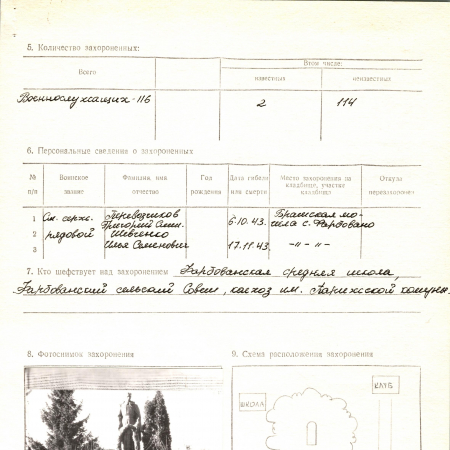 5. Количество захороненных:
Всего
В том числе:
известных
неизвестных
Военнослужащих-116
2
114
6. Персональные сведения о захороненных
№ п/п
Воинское звание
Фамилия, имя отчество
Год рождения
Дата гибели или смерти
Место захоронения на кладбище, участке кладбища
Откуда перезахоронен
1 Ст. серж. Перевозчиков 6.10.43. Братская мо-
Григорий гила с. Фарбовано
2 рядовой Шевченко
3 Илья Семенович 17.11.43. -"- -"-
7. Кто шефствует над захоронением Фарбованская средняя школа,
Фарбованский сельский Совет, колхоз им. Парижской комуны.
8. Фотоснимок захоронения
9. Схема расположения захоронения
ШКОЛА
КЛУБ